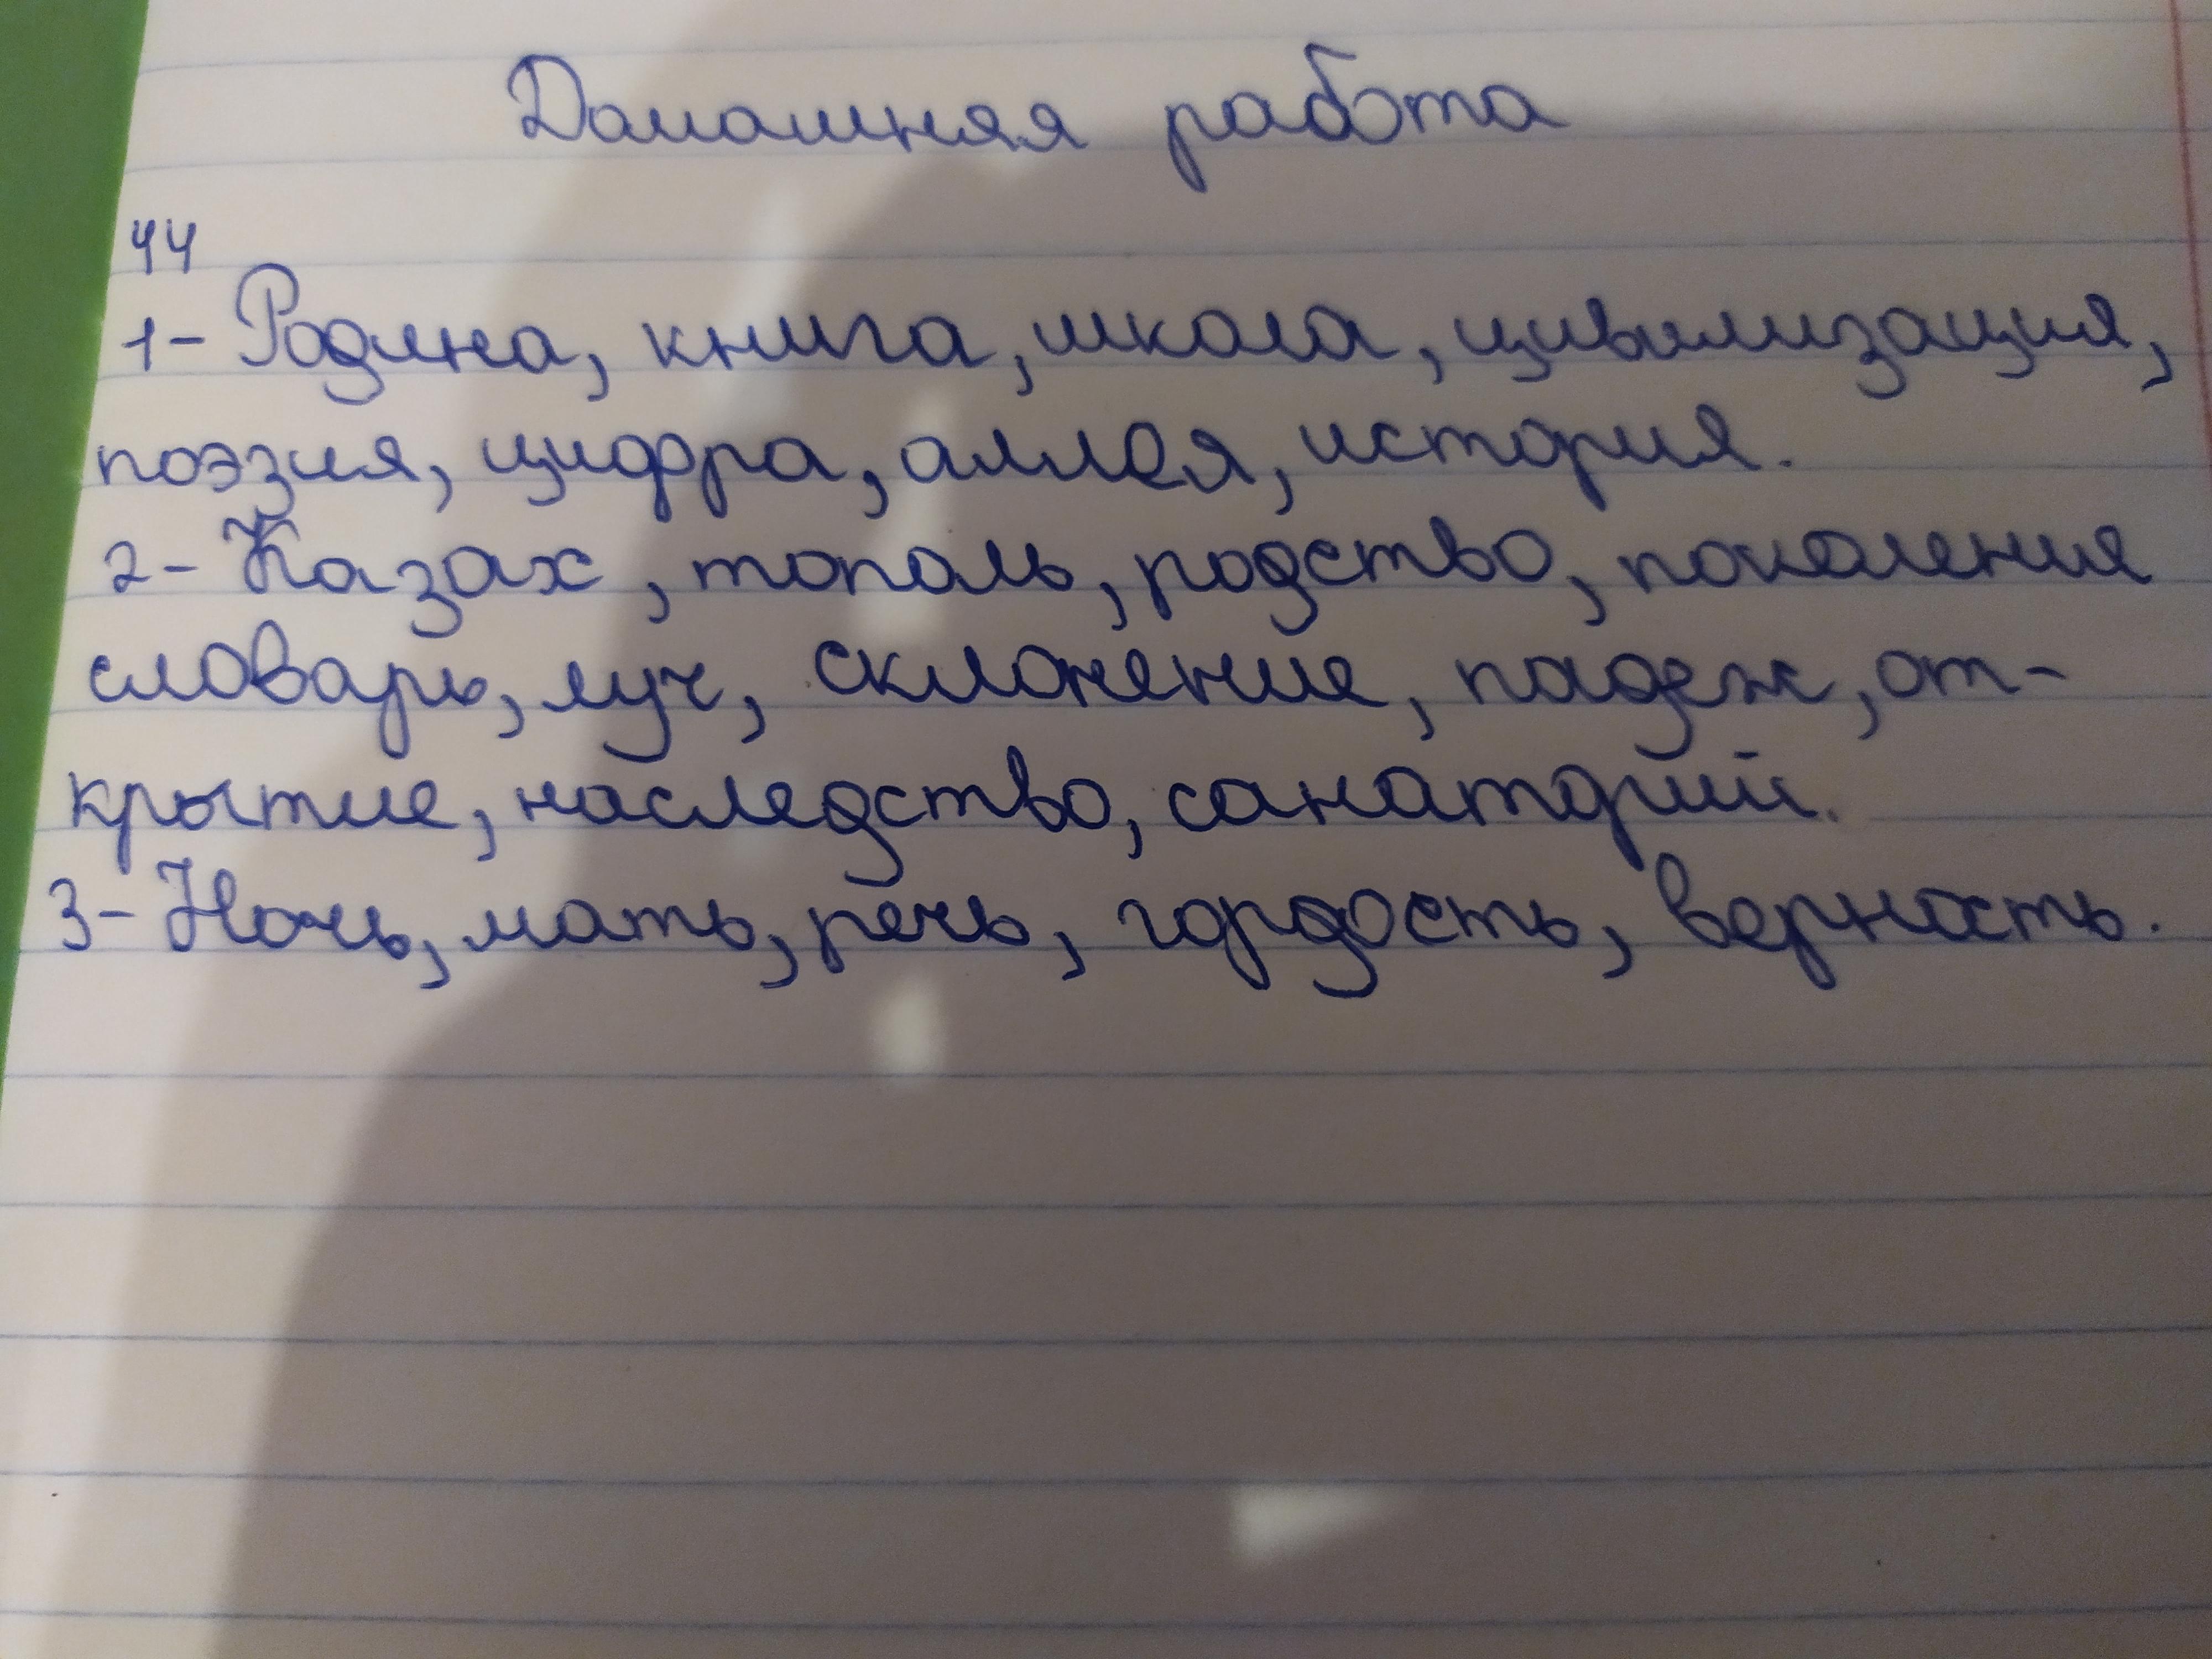 Домашняя работа
44
1- Родина, книга, школа, цивилизация,
поэзия, цифра, аллея, история.
2- Казах, тополь, родство, поколения
словарь, луч, склонение, падеж, от-
крытие, наследство, санаторий.
3- Ночь, мать, речь, гордость, верность.